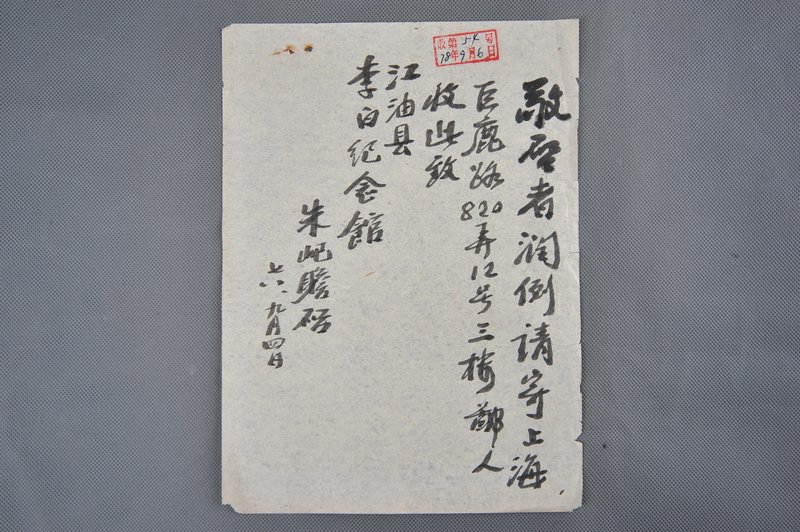 敬启者润例请寄上海
巨鹿路820弄12号三楼鄙人
收此致
江油县
李白纪念馆
朱屺瞻启
七八.九月四日
收第54号
78年9月6日